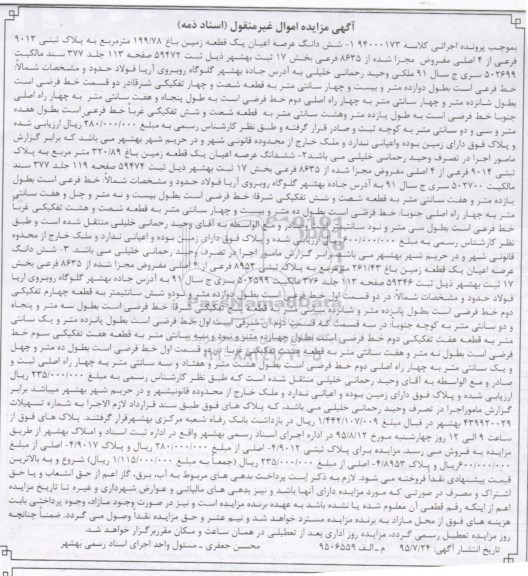 آگهی مزایده اموال غیرمنقول (اسناد ذمه)
بموجب پرونده اجرائی کلاسه ۹۴۰۰۰۱۷۳ ۱- شش دانگ عرصه اعیان یک قطعه زمین باغ ۱۹۹/۷۸ مترمربع به پلاک ثبتی ۹۰۱۳
فرعی از ۴ اصلی مفروض مجزا شده از ۸۶۳۵ فرعی بخش ۱۷ ثبت بهشهر ذیل ثبت ۵۹۴۷۲ صفحه ۱۱۳ جلد ۳۷۷ سند مالکیت
۵۰۲۶۹۹ سری ج سال ۹۱ ملکی وحید رحمانی خلیلی به آدرس جاده بهشهر گلوگاه روبروی آریا فولاد حدود و مشخصات شمالاً:
خط فرعی است بطول دوازده متر و بیست و چهار سانتی متر به قطعه شصت و چهار تفکیکی شرقاً: در دو قسمت خط فرضی است
بطول شانزده متر و چهار سانتی متر به چهار راه اصلی دوم خط فرضی است به طول پنجاه و هفت سانتی متر به چهار راه اصلی
جنوبا خط فرضی است به طول یازده متر وهشت سانتی متر به قطعه شصت و شش تفکیکی غرباً خط فرعی است بطول هفده
متر و سی و دو سانتی متر به کوچه ثبت و صادر قرار گرفته و طبق نظر کارشناس رسمی به مبلغ ۲۸۰/۰۰۰/۰۰۰ ریال ارزیابی شده
و پلاک فوق دارای زمین بوده واعیانی ندارد و ملک خارج از محدوده قانونی شهر و در حریم شهر بهشهر می باشد که برابر گزارش
مامور اجرا در تصرف وحید رحمانی خلیلی می باشد ۲- ششدانگ عرصه اعیان یک قطعه زمین باغ ۳۲۰/۸۹ متر مربع به پلاک
ثبتی ۹۰۱۴ فرعی از ۴ اصلی مفروض مجزا شده از ۸۶۳۵ فرعی بخش ۱۷ ثبت بهشهر ذیل ثبت ۵۹۴۷۴ صفحه ۱۱۹ جلد ۳۷۷ سند
مالکیت ۵۰۲۷۰۰ سری ج سال ۹۱ به آدرس جاده بهشهر گلوگاه روبروی آریا فولاد حدود و مشخصات شمالاً: خط فرعی است بطول
یازده متر و هفت سانتی متر به قطعه شصت و شش تفکیکی شرقا: خط فرضی است بطول بیست و نه متر و چهل و هفت سانتی
متر به چهار راه اصلی جنوبا: خط فرضی است بطول بیست و چهار سانتی متر به قطعه شصت و هشت تفکیکی غرباً
خط فرعی است بطول سی متر و نود سانتی متر و مع الواسطه به آقای وحید رحمانی خلیلی منتقل شده است و طبق
نظر کارشناس رسمی به مبلغ ریال ارزیابی شده و پلاک فوق دارای زمین بوده و اعیانی ندارد و ملک خارج از محدوده
قانونی شهر و در حریم شهر بهشهر می باشد برابر گزارش مامور اجرا در تصرف رحمانی خلیلی می باشد. ۳- شش دانگ
عرصه اعیان یک قطعه زمین باغ ۲۶۱/۴۳ متر مربع به پلاک ثبتی ۸۹۵۳ فرعی از ۴ اصلی مفروض مجزا شده از ۸۶۳۵ فرعی بخش
۱۷ ثبت بهشهر ذیل ثبت ۵۹۳۴۶ صفحه جلد ۳۷۶ سند مالکیت ۵۰۲۵۹۹ سری ج سال ۹۱ به آدرس جاده بهشهر گلوگاه روبروی آریا
فولاد حدود و مشخصات شمالاً: در دو قسمت خط فرعی است بطول یازده متر و دو شش سانتیمتر به قطعه چهارم تفکیکی
دوم خط فرضی است بطول پانزده متر و شانزده سانتی متر به قطعه تفکیکی شرقا: خط فرضی است بطول سه متر و پنجاه
و دو سانتی متر به کوچه جنوبا: در سه قسمت که قسمت دوم آن شرقی است اول خط فرضی است بطول پانزده متر و یک سانتی
متر به قطعه هفت تفکیکی دوم خط فرضی است بطول چهارده متر و نود و سه سانتی متر به قطعه هفت تفکیکی سوم خط
فرضی است بطول نه متر و هفت سانتی متر به قطعه هشت تفکیکی غرباً در دو قسمت اول خط فرضی است بطول ده متر و چهل
و یک سانتی متر به چهار راه اصلی دوم خط فرضی است بطول هشت متر و هفتاد و سه سانتی متر به چهار راه اصلی ثبت و
صادر و مع الواسطه به آقای وحید رحمانی خلیلی منتقل شده است که طبق نظر کارشناس رسمی به مبلغ ۲۳۵/۰۰۰/۰۰۰ ریال
ارزیابی شده و پلاک فوق دارای زمین بوده و اعیانی ندارد و ملک خارج از محدوده قانونیشهر و در حریم شهر بهشهر میباشد برابر
گزارش ماموراجرا در تصرف وحید رحمانی خلیلی می باشد، که پلاک های فوق طبق سند قرارداد لازم الاجرا به شماره تسهیلات
۴۳۹۹۲۰۰۲۹ بهشهر در قبال مبلغ ۱/۴۴۴/۱۰۷/۰۰۹ ریال در بازداشت بانک رفاه شعبه مرکزی بهشهرقرار گرفتند. پلاک های فوق از
ساعت ۹ الی ۱۲ روز چهارشنبه مورخ ۹۵/۸/۱۲ در اداره اجرای اسناد رسمی بهشهر واقع در اداره ثبت اسناد و املاک بهشهر از طریق
مزایده به فروش می رسد. مزایده برای پلاک ثبتی ۴/۹۰۱۳- اصلی از مبلغ ۲۸۰/۰۰۰/۰۰۰ ریال و پلاک ۴/۹۰۱۷- اصلی از مبلغ
۶۰۰/۰۰۰/۰۰۰ ریال و پلاک ۴/۸۹۵۳- اصلی از مبلغ ۲۳۵/۰۰۰/۰۰۰ ریال (جمعاً به مبلغ ۱/۱۱۵/۰۰۰/۰۰۰ ریال) شروع و به بالاترین
قیمت پیشنهادی نقداً فروخته می شود. لازم به ذکر است پرداخت بدهی های مربوط به آب، برق، گاز اعم از حق انشعاب و یا حق
اشتراک و مصرف در صورتی که مورد مزایده دارای آنها باشد و نیز بدهی های مالیاتی و عوارض شهرداری و غیره تا تاریخ مزایده
اعم از اینکه رقم قطعی آن معلوم شده یا نشده باشد به عهده برنده مزایده است و نیز در صورت وجود مازاد، وجوه پرداختی بابت
هزینه های فوق از محل مازاد به برنده مزایده مسترد خواهد شد و نیم عشر و حق مزایده نقداً وصول می گردد. ضمناً چنانچه
روز مزایده تعطیل رسمی گردد، مزایده روز اداری بعد از تعطیلی در همان ساعت و مکان مقرربرگزار خواهد شد.
تاریخ انتشار آگهی: ۹۵/۷/۲۴ م-الف ۹۵۰۶۵۵۹ محسن جعفری - مسئول واحد اجرای اسناد رسمی بهشهر